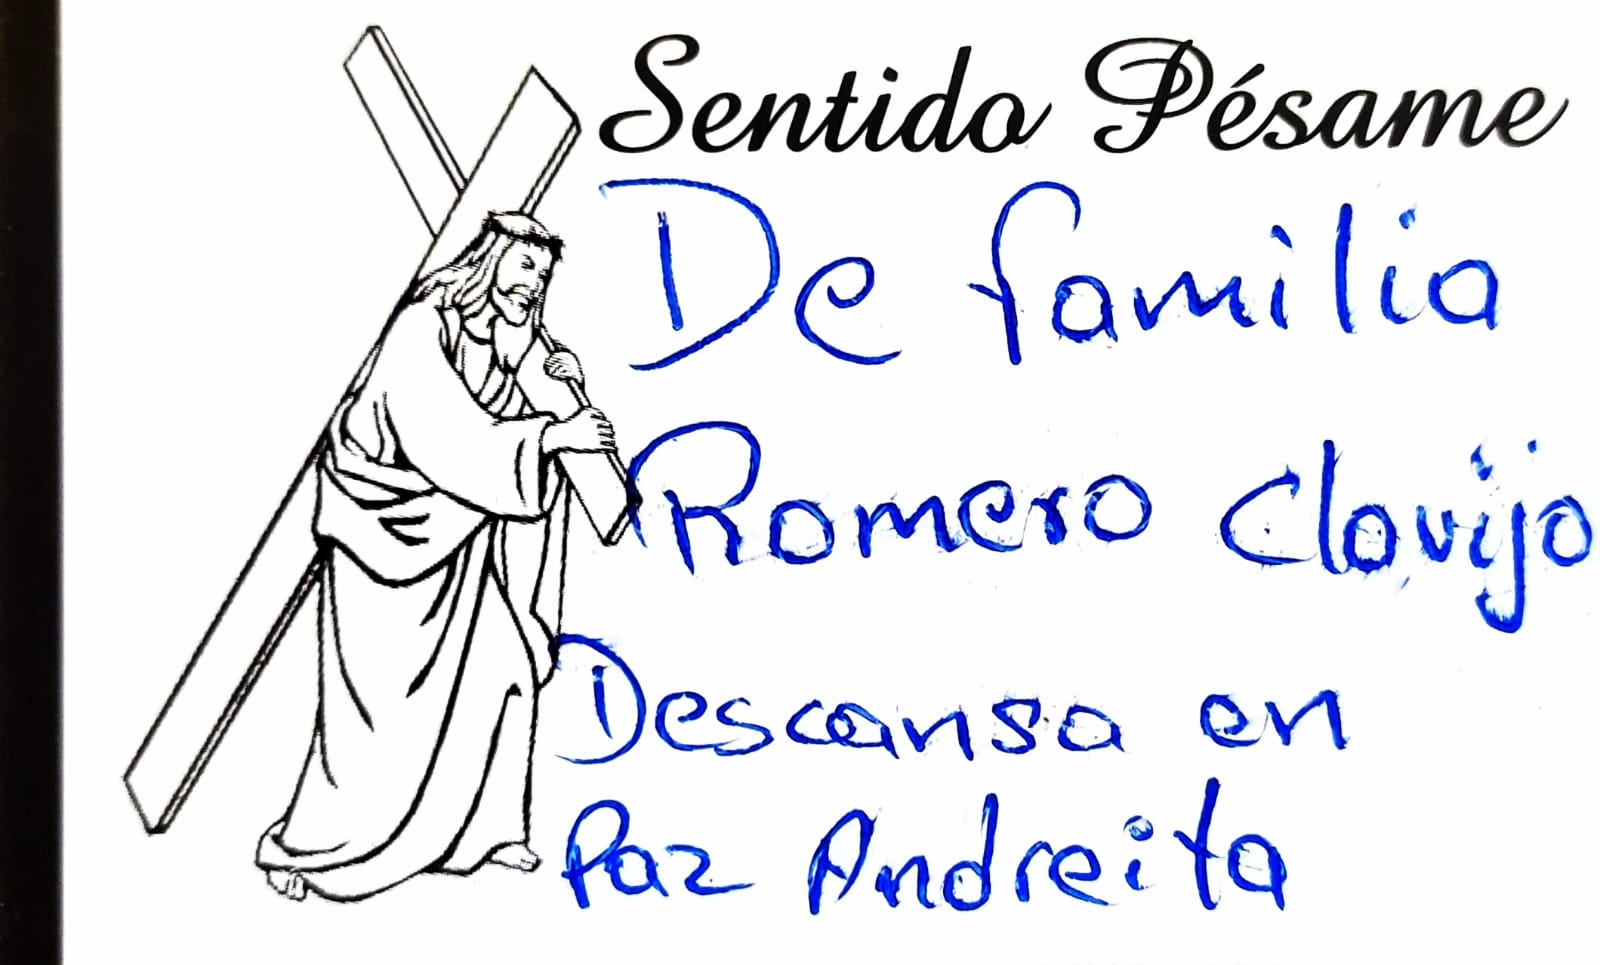 Sentido Pésame
De familia
Romero Clavijo
Descansa en
Paz Andreita